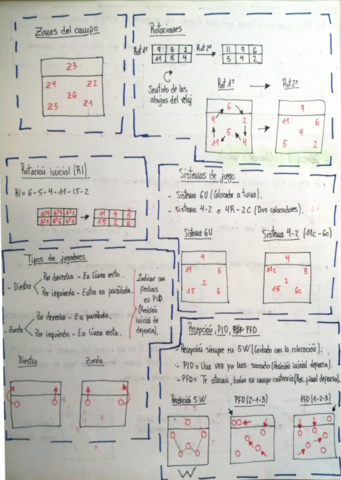 Zonas del campo
Z3
Z4
Z2
Z6
Z5
Z1
Rotaciones
Rot 1ª
9 8 2
11 5 4
Rot 2ª
11 9 6
5 4 2
Sentido de las
agujas del reloj
Rot 1ª
Rot 2ª
6
9
2
11
4
5
9
11
6
5
2
4
Rotación inicial (RI)
RI = 6-5-4-11-15-2
11 4 5
15 2 6
Sistemas de juego
- Sistema 6U (Colocador a turnos).
- Sistema 4-2 o 4R-2C (Dos colocadores).
Sistema 6U
Sistema 4-2 (11C-6C)
4
11
5
2
15
6
4
11C
3
2
15
6C
Tipos de jugadores
- Diestro
Por derecha - En línea recta.
Por izquierda - Entro en parábola.
- Zurdo
Por derecha - En parábola.
Por izquierda - En línea recta.
Indicar con
flechas
en PID
(Posición
inicial de
defensa).
Diestro
Zurdo
Recepción, PID, PFD
- Recepción siempre en 5W (Cuidado con la colocación).
- PID = Una vez ya has sacado (Posición inicial defensa).
- PFD = Te atacan, balón en campo contrario (Pos. final defensa).
Recepción 5W
PFD (2-1-3)
PFD (1-2-3)
W